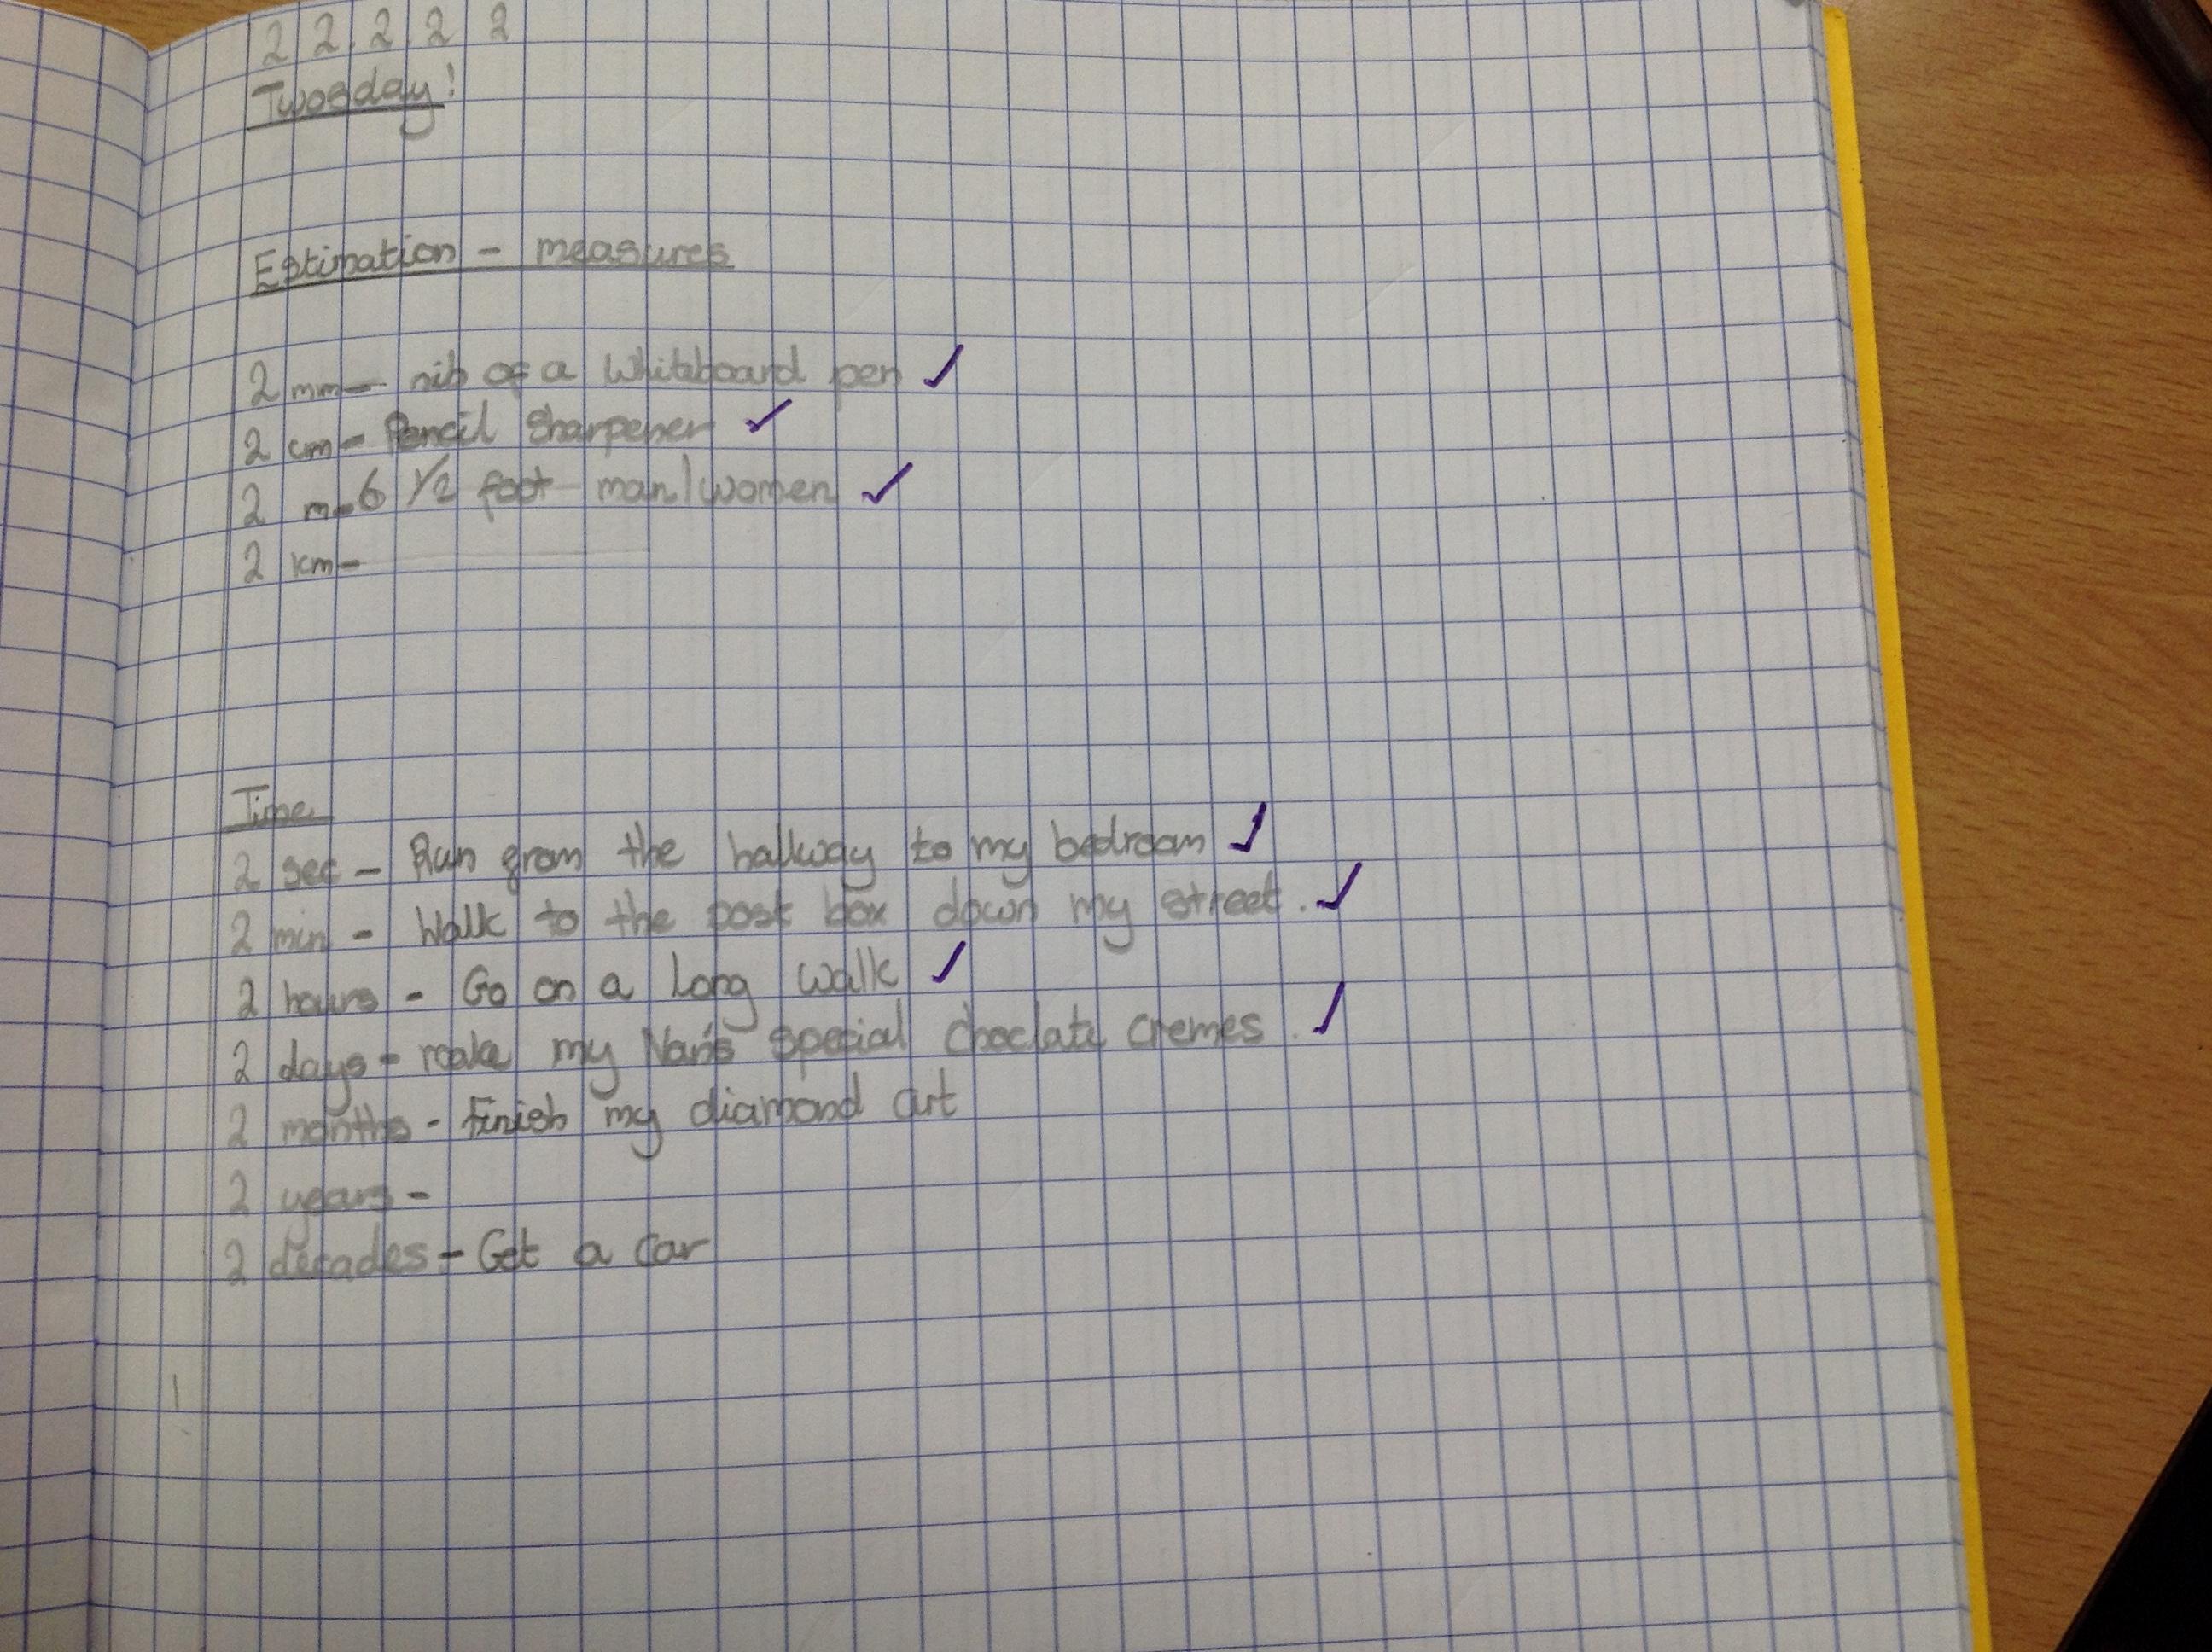 22.2.22
Twosday!
Estimation - measures
2 mm - nib of a whiteboard pen ✓
2 cm - Pencil sharpener ✓
2 m - 6 1/2 foot man/women ✓
2 km -
Time
2 sec - Run from the hallway to my bedroom ✓
2 min - Walk to the post box down my street. ✓
2 hours - Go on a long walk ✓
2 days - make my Nan's special choclate cremes. ✓
2 months - Finish my diamond art
2 years -
2 decades - Get a car